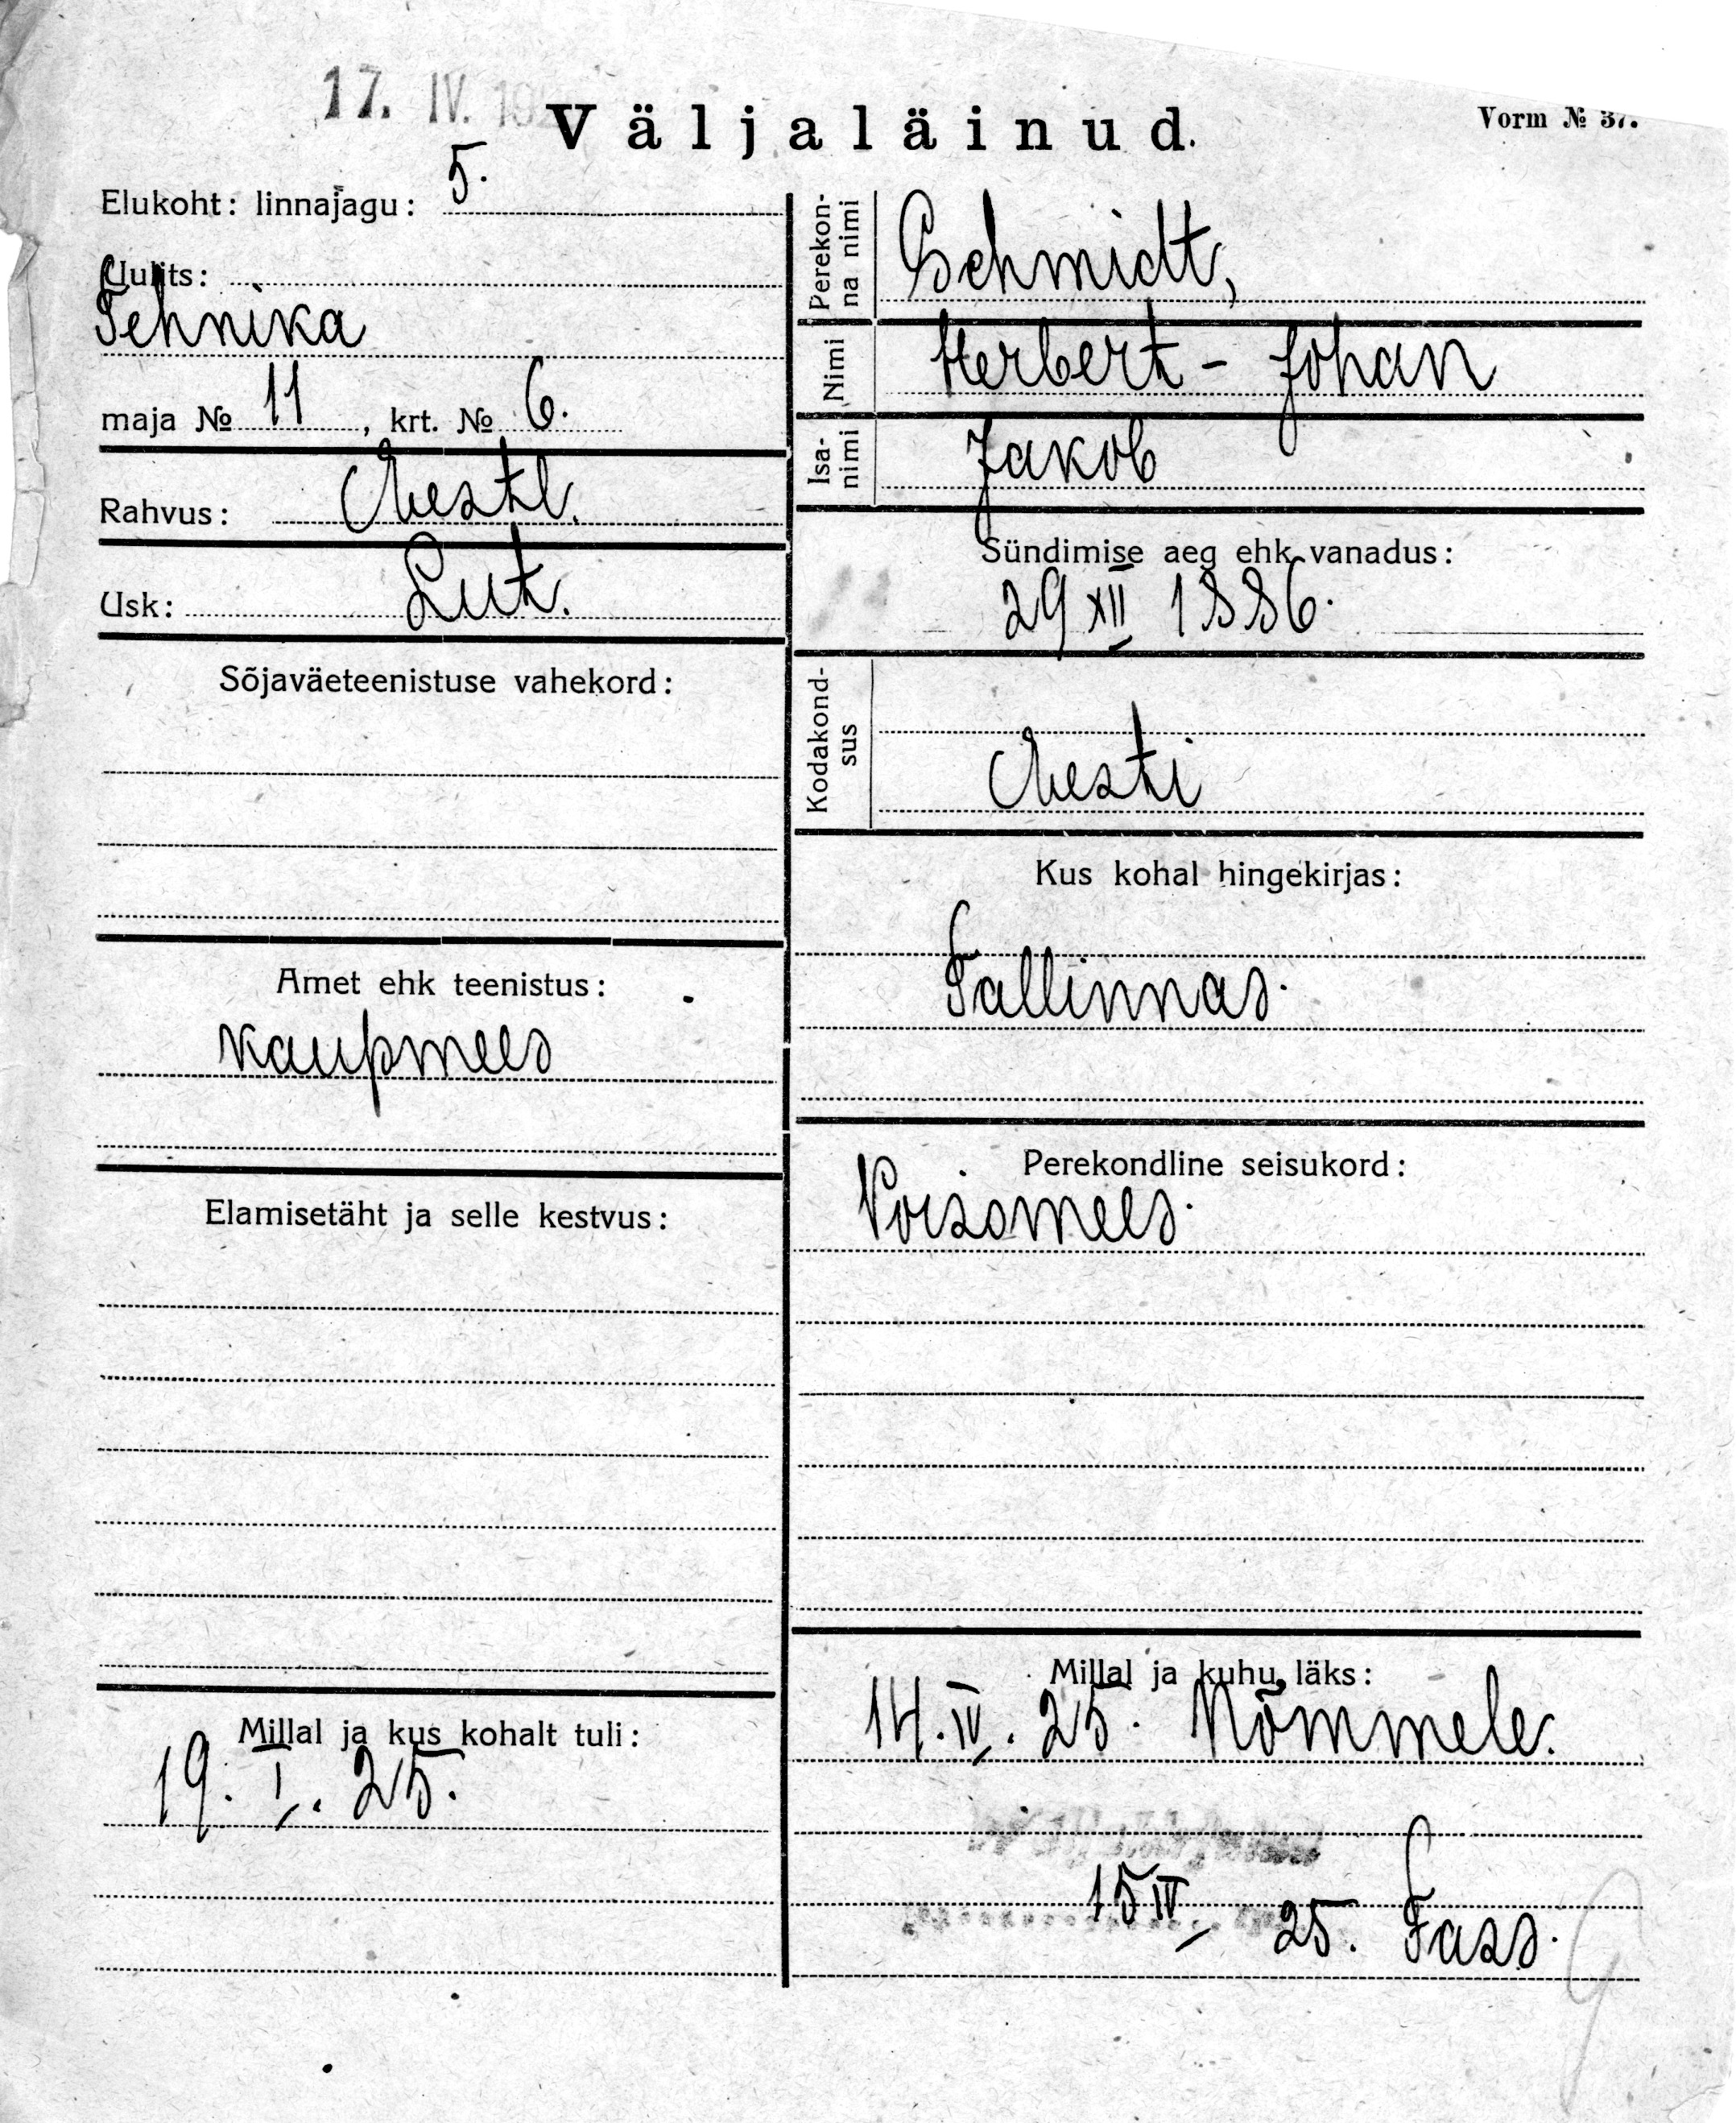 17. IV. 192
Väljaläinud.
Vorm № 37.
Elukoht: linnajagu: 5.
Uulits:
Tehnika
maja № 11, krt. № 6.
Rahvus: Eestl.
Usk: Lut.
Sõjaväeteenistuse vahekord:
Amet ehk teenistus:
Kaupmees
Elamisetäht ja selle kestvus:
Millal ja kus kohalt tuli:
19. I. 25.
Perekonna nimi Schmidt,
Nimi Herbert - Johan
Isanimi Jakob
Sündimise aeg ehk vanadus:
29 XII 1886.
Kodakondsus
Eesti
Kus kohal hingekirjas:
Tallinnas.
Perekondline seisukord:
Poissmees.
Millal ja kuhu läks:
14. IV. 25. Nõmmele.
15 IV 25. Tass.